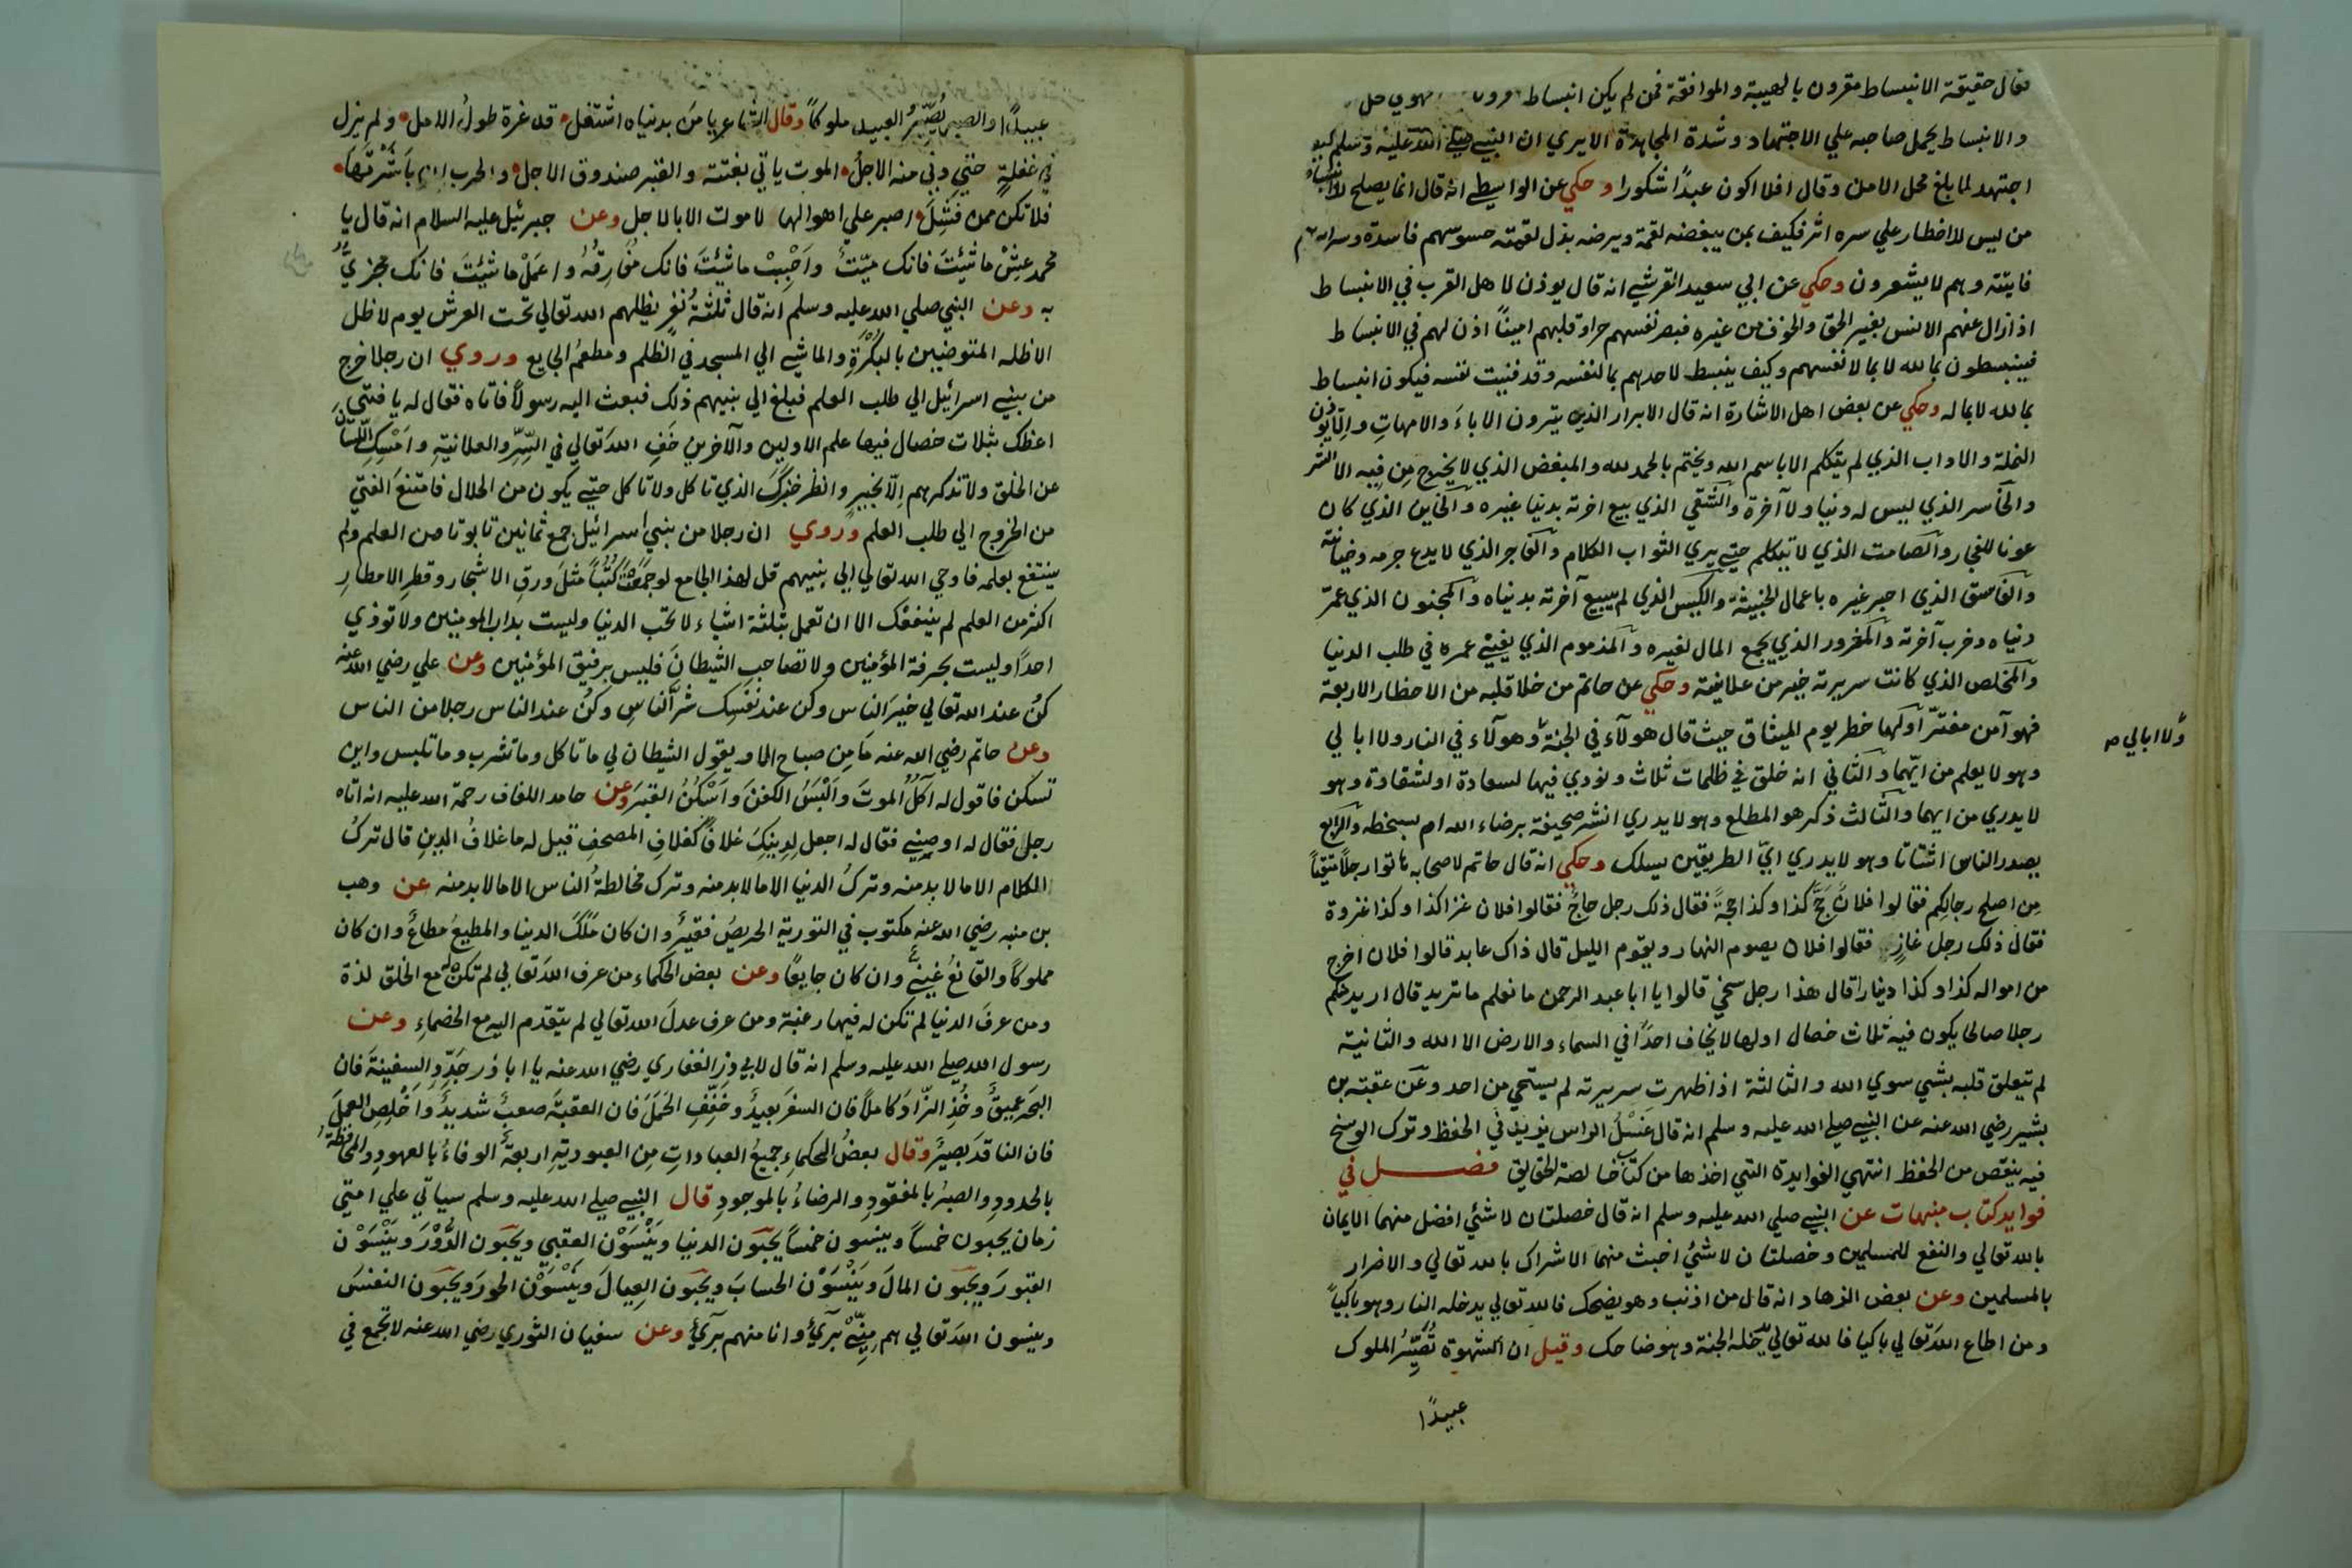 فقال حقيقة الانبساط مقرون بالهيبة والموافقة فمن لم يكن انبساط
والانبساط يحمل صاحبه علي الاجتهاد وشدة المجاهدة الايري ان النبي صلي الله عليه وسلم كيف
اجتهد لما بلغ محل الامن وقال افلا اكون عبدًا شكورا وحكي عن الواسطي انه قال انما يصلح للانبساط
من ليس للاخطار علي سره اثر فكيف بمن يبغضه لقمة ويرضه بذل لقمته حسوسهم فاسدة
فايتة وهم لا يشعرون وحكي عن ابي سعيد القرشي انه قال يوذن لاهل القرب في الانبساط
اذا زال عنهم الانس بغير الحق والخوف من غيره فبصر نفسهم حرا وقلبهم امينًا اذن لهم في الانبساط
فينبسطون بما لله لا بما لانفسهم وكيف ينبسط لاحدهم بما لنفسه وقد فنيت نفسه فيكون انبساط
بما لله لا بما له وحكي عن بعض اهل الاشارة انه قال الابرار الذين يبرون الاباءَ والامهاتِ ولا يوذون
النملة والاواب الذي لم يتكلم الا باسم الله ويختم بالحمد لله والمبغض الذي لا يخرج مِن فيه الا الشر
والخاسر الذي ليس له دنيا ولا آخرة والشقي الذي بيع اخرته بدنيا غيره والخاين الذي كان
عونا للفجار والصامت الذي لا يتكلم حتي يري الثواب الكلام والفاجر الذي لا يدع جرمه وخيانته
والفاسق الذي اجبر غيره باعمال الخبيثة والكيس الذي لم يبيع آخرته بدنياه والمجنون الذي عمّر
دنياه وخرب آخرته والمغرور الذي يجمع المال لغيره والمذموم الذي يفني عمره في طلب الدنيا
والمخلص الذي كانت سريرته خير من علانيته وحكي عن حاتم من خلا قلبه من الاخطار الاربعة
فهو آمن مغترّ اولها خطر يوم الميثاق حيث قال هولآء في الجنة وهولآء في النار ولا ابالي
وهو لا يعلم من ايّهما والثاني انه خلق في ظلمات ثلاث ونودي فيها لسعادة او لشقاوة وهو
لا يدري من ايهما والثالث ذكر هو المطلع وهو لا يدري انشر صحيفة برضاء الله ام بسخطه والرابع
يصدر الناس اشتاتا وهو لا يدري ايّ الطريقين يسلك وحكي انه قال حاتم لاصحابه
مِن اصلح رجالكم فقالوا فلان حجّ كذا وكذا حجةً فقال ذلك رجل حاجّ فقالوا فلان غزا كذا وكذا غزوة
فقال ذلك رجل غازٍ فقالوا فلان يصوم النهار ويقوم الليل قال ذاك عابد قالوا فلان اخرج
من امواله كذا وكذا دينارا قال هذا رجل سخي قالوا يا ابا عبد الرحمن ما نعلم ما تريد قال اريد منكم
رجلا صالحا يكون فيه ثلاث خصال اولها لا يخاف احدًا في السماء والارض الا الله والثانية
لم يتعلق قلبه بشي سوي الله والثالثة اذا ظهرت سريرته لم يستحي من احد وعن عقبة بن
بشير رضي الله عنه عن النبي صلي الله عليه وسلم انه قال غَسْلُ الراس يزيد في الحفظ وترك الوسخ
فيه ينقص من الحفظ انتهي الفوايدة التي اخذها من كتاب خالصة الحقايق فصل في
فوايد كتاب منبهات عن النبي صلي الله عليه وسلم انه قال خصلتان لا شئي افضل منهما الايمان
بالله تعالي والنفع للمسلمين وخصلتان لا شئي اخبث منهما الاشراك بالله تعالي والاضرار
بالمسلمين وعن بعض الزهاد انه قال من اذنب وهو يضحك فالله تعالي يدخله النار وهو باكيًا
ومن اطاع اللهَ تعالي باكيا فالله تعالي يدخله الجنة وهو ضاحك وقيل ان الشهوة تُصَيِّرُ الملوك
عبيدًا
ولا ابالي صـ
عبيدًا والصبر يُصَيِّرُ العبيد ملوكًا وقال الشاعر يا مَن بدنياه اشتغل قد غرة طولُ الامل ولم يزل
في غفلةٍ حتي دني منه الاجلُ الموت ياتي بغتتة والقبر صندوق الاجل
فلا تكن ممن فَشِلَ اصبر علي اهوالها لا موت الا بالاجل وعن جبرئيل عليه السلام انه قال يا
محمد عِشْ ما شئِتَ فانك ميّتٌ واَحْبِبْ ما شئِتَ فانك مُفَارِقُهُ واعمَلْ ما شئيتَ فانك مجزيٌّ
به وعن النبي صلي الله عليه وسلم انه قال ثلثةُ نفرٍ يظلهم الله تعالي تحت العرش يوم لا ظل
الا ظله المتوضيين بالبكرةِ والماشي الي المسجد في الظلم ومطعمُ الجايع وروي ان رجلا خرج
من بني اسرائيل الي طلب العلم فبلغ الي نبيهم ذلك فبعث اليه رسولاً فاتاه فقال له يا فتي
اعظك بثلاث خصال فيها علم الاولين والآخرين خَفِ اللهَ تعالي في السِّرِّ والعلانيةِ واَمْسِكِ اللسانَ
عن الخلق ولا تذكرهم اِلّا بخيرٍ وانظر خبزَكَ الذي تاكل ولا تاكل حتي يكون من الحلال فامتنع الفتي
من الخروج الي طلب العلم وروي ان رجلا من بني اسرائيل جمع ثمانين تابوتا من العلم ولم
ينتفع بعلمه فاوحي الله تعالي الي نبيهم قل لهذا الجامع لو جَمَعْتَ كُتُبًا مثلَ ورقِ الاشجار وقطرِ الامطارِ
اكثر من العلم لم ينفعك الا ان تعمل بثلثة اشياء لا تحب الدنيا وليست بداب المومنين ولا توذي
احداً وليست بحرفة المؤمنين ولا تصاحبِ الشيطانَ فليس برفيق المؤمنين وعن علي رضي الله عنه
كنُ عند الله تعالي خيرَ الناس وكن عند نَفْسِك شرَّ الناسِ وكنُ عند الناس رجلا من الناس
وعن حاتم رضي الله عنه مَا مِن صباح الا ويقول الشيطان لي ما تاكل وما تشرب وما تلبس واين
تسكن فاقول له آكُلُ الموتَ واَلْبَسُ الكفنَ واَسْكُنُ القبرَ وعن حامد اللفاف رحمة الله عليه انه اتاه
رجلٌ فقال له اوصِنِي فقال له اجعل لِدِينِكَ غلافًا كغلافِ المصحفِ قيل له ما غلافُ الدِينِ قال تركُ
الكلام الا ما لا بد منه وتركُ الدنيا الا ما لا بد منه وترك مخالطةُ الناس الا ما لا بد منه عن وهب
بن منبه رضي الله عنه مكتوب في التوريةِ الحريصُ فقيرٌ وان كان مَلَكَ الدنيا والمطيعُ مطاعٌ وان كان
مملوكًا والقانعُ غنيٌّ وان كان جايعًا وعن بعض الحكماء من عرف اللهَ تعالي لم تكن له مع الخلق لذة
ومن عرفَ الدنيا لم تكن له فيها رغبة ومن عرف عدلَ الله تعالي لم يتقدم اليه مع الخصماءِ وعن
رسول الله صلي الله عليه وسلم انه قال لابي ذر الغفاري رضي الله عنه يا ابا ذر جَدِّدِ السفينةَ فان
البحرَ عميقٌ وخُذِ الزّادَ كاملاً فان السفرَ بعيدٌ وخَفِّفِ الحَملَ فان العقبَةَ صعبٌ شديدٌ واَخْلِصِ العملَ
فان الناقدَ بصيرٌ وقال بعضُ الحكماءِ جميعُ العباداتِ مِن العبوديةِ اربعةٌ الوفاءُ بالعهودِ والمحافظةُ
بالحدودِ والصبرُ بالمفقودِ والرضاءُ بالموجودِ قال النبي صلي الله عليه وسلم سياتي علي امتي
زمان يحبون خمساً وينسون خمساً يحبّون الدنيا ويَنْسَوْن العقبي ويحبّون الدُّوْرَ ويَنْسَوْن
القبورَ ويحبّون المالَ ويَنْسَوْن الحسابَ ويحبّون العِيالَ ويَنْسَوْن الحورَ ويحبّون النفسَ
وينسون اللهَ تعالي هم مِنِّيْ برَآءٌ وانا منهم برَآءٌ وعن سفيان الثوري رضي الله عنه لا تجمع في